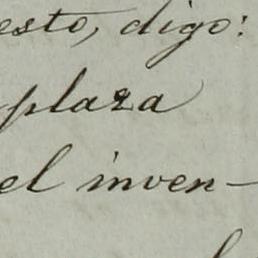 esto, digo:
plaza
el inven-